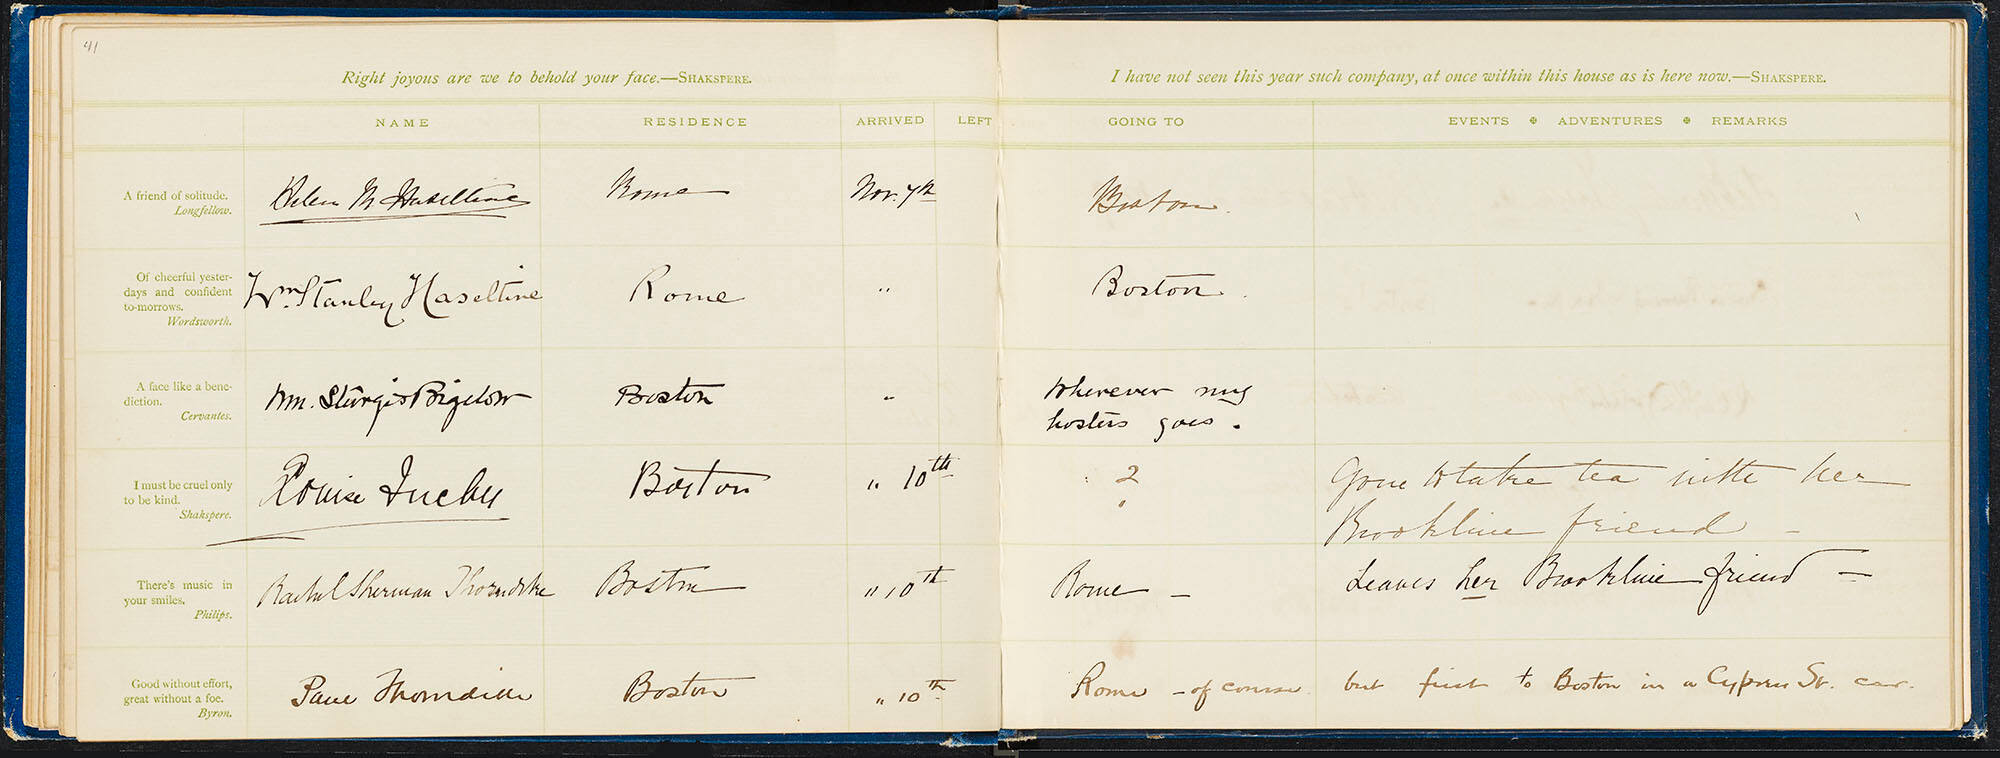 41
Right joyous are we to behold your face.—SHAKSPERE.
I have not seen this year such company, at once within this house as is here now.—SHAKSPERE.
NAME RESIDENCE ARRIVED LEFT GOING TO EVENTS ✠ ADVENTURES ✠ REMARKS
A friend of solitude.
Longfellow.
Helen M Haseltine Rome Nov. 7th Boston.
Of cheerful yester-
days and confident
to-morrows.
Wordsworth.
Wm Stanley Haseltine Rome " Boston.
A face like a bene-
diction.
Cervantes.
Wm. Sturgis Bigelow Boston " Wherever my
hostess goes.
I must be cruel only
to be kind.
Shakspere.
Louise Boston " 10th ? Gone to take tea with her
Brookline friend —
There's music in
your smiles.
Philips.
Rachel Sherman Thorndike Boston " 10th Rome — Leaves her Brookline friend —
Good without effort,
great without a foe.
Byron.
Paul Thorndike Boston " 10th Rome - of course. but first to Boston in a Cypress St. car.